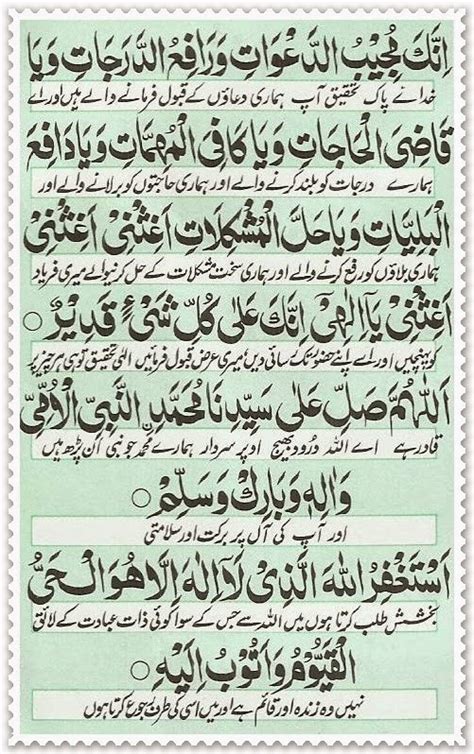 اِنَّكَ مُجِيْبُ الدَّعْوَاتِ وَرَافِعُ الدَّرَجَاتِ وَيَا
خدائے پاک تحقیق آپ ہماری دعاؤں کے قبول فرمانے والے ہیں اور اے
قَاضِيَ الْحَاجَاتِ وَيَا كَافِيَ الْمُهِمَّاتِ وَيَا دَافِعَ
ہمارے درجات کو بلند کرنے والے اور ہماری حاجتوں کو برلانے والے اور
الْبَلِيَّاتِ وَيَا حَلَّ الْمُشْكِلَاتِ اَغِثْنِيْ اَغِثْنِيْ
ہماری بلاؤں کو رفع کرنے والے اور ہماری سخت مشکلات کے حل کرنیوالے میری فریاد
اَغِثْنِيْ يَآ اِلٰهِيْ اِنَّكَ عَلٰى كُلِّ شَيْءٍ قَدِيْرٌ ○
کو پہنچیں اور اسے اپنے حضور تک رسائی دیں میری عرض قبول فرمائیں الٰہی تحقیق تو ہی ہر چیز پر
اَللّٰهُمَّ صَلِّ عَلٰى سَيِّدِنَا مُحَمَّدِ النَّبِيِّ الْاُمِّيِّ
قادر ہے اے اللہ درود بھیج اوپر سردار ہمارے محمد جو نبی ان پڑھ ہیں
وَاٰلِهٖ وَبَارِكْ وَسَلِّمْ ○
اور آپ کی آل پر برکت اور سلامتی
اَسْتَغْفِرُ اللّٰهَ الَّذِيْ لَآ اِلٰهَ اِلَّا هُوَ الْحَيُّ
بخشش طلب کرتا ہوں میں اللہ سے جس کے سوا کوئی ذات عبادت کے لائق
الْقَيُّوْمُ وَاَتُوْبُ اِلَيْهِ ○
نہیں وہ زندہ اور قائم ہے اور میں اسی کی طرف رجوع کرتا ہوں